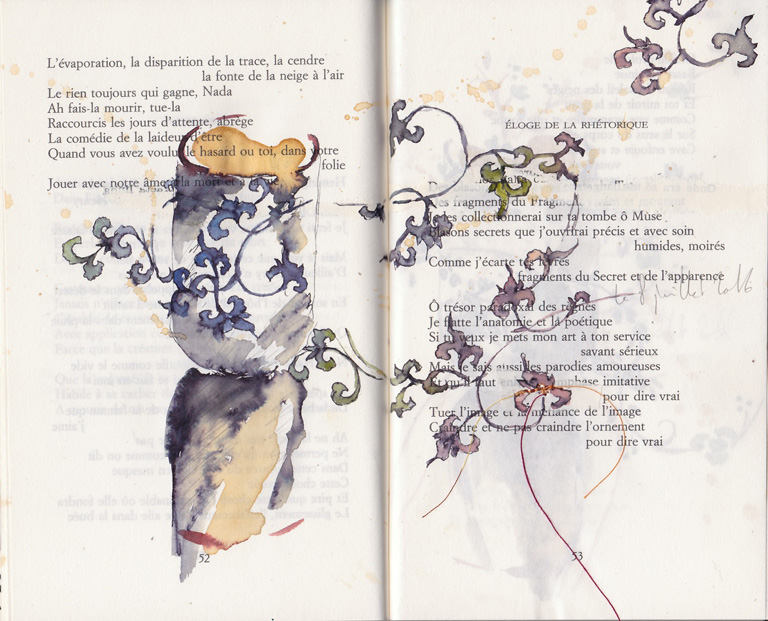 L'évaporation, la disparition de la trace, la cendre
la fonte de la neige à l'air
Le rien toujours qui gagne, Nada
Ah fais-la mourir, tue-la
Raccourcis les jours d'attente, abrège
La comédie de la laideur d'être
Quand vous avez voulu le hasard ou toi, dans votre
folie
Jouer avec notre âme à la mort et à la
52
ÉLOGE DE LA RHÉTORIQUE
Des fragments du Fragment
Je les collectionnerai sur ta tombe ô Muse
Blasons secrets que j'ouvrirai précis et avec soin
humides, moirés
Comme j'écarte tes lèvres
fragments du Secret et de l'apparence
Ô trésor paradoxal des règnes
Je flatte l'anatomie et la poétique
Si tu veux je mets mon art à ton service
savant sérieux
Mais je sais aussi les parodies amoureuses
Et qu'il faut emphase imitative
pour dire vrai
Tuer l'image et la méfiance de l'image
Craindre et ne pas craindre l'ornement
pour dire vrai
le 8 juillet 2016
53